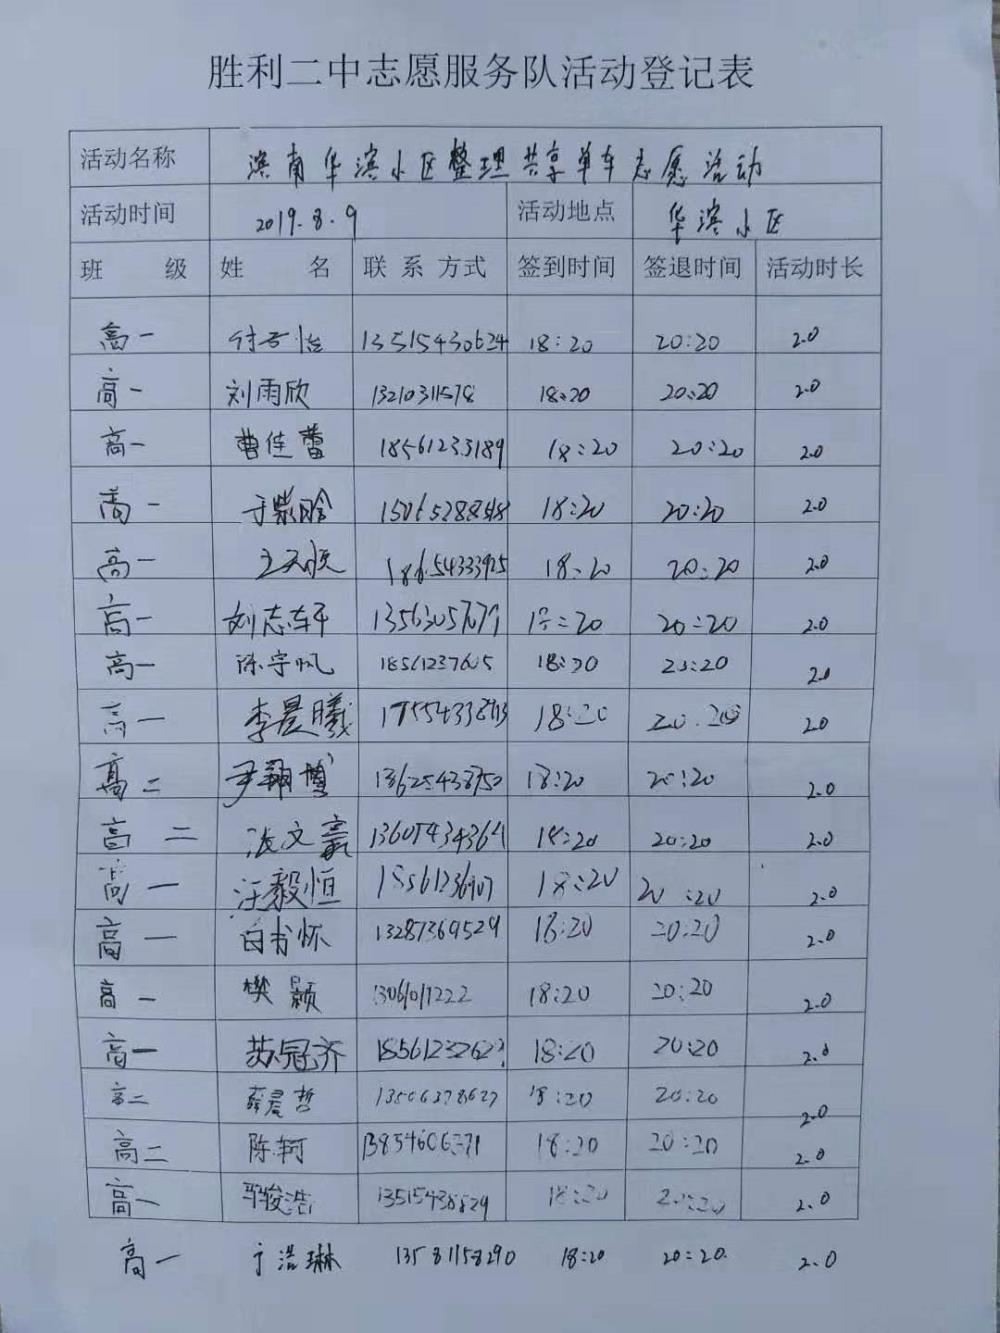 胜利二中志愿服务队活动登记表
活动名称 滨南华滨小区整理共享单车志愿活动
活动时间 2019.8.9 活动地点 华滨小区
班 级 姓 名 联 系 方式 签到时间 签退时间 活动时长
高一 付子怡 13515430624 18:20 20:20 2.0
高一 刘雨欣 13210311578 18:20 20:20 2.0
高一 曹佳蕾 18561233189 18:20 20:20 2.0
高一 于紫晗 15065288848 18:20 20:20 2.0
高一 18654333925 18:20 20:20 2.0
高一 刘志轩 18:20 20:20 2.0
高一 陈宇帆 18561237605 18:20 20:20 2.0
高一 李晨曦 18:20 20:20 2.0
高二 尹翔博 13625438750 18:20 20:20 2.0
高二 张文豪 13605434364 18:20 20:20 2.0
高一 汪毅恒 18561236907 18:20 20:20 2.0
高一 白书怀 13287369529 18:20 20:20 2.0
高一 樊颢 13061011222 18:20 20:20 2.0
高一 苏冠齐 18561232623 18:20 20:20 2.0
高二 薛晨哲 13506378627 18:20 20:20 2.0
高二 陈轲 13854606371 18:20 20:20 2.0
高一 骏浩 13515438829 18:20 20:20 2.0
高一 于浩琳 13581158290 18:20 20:20 2.0